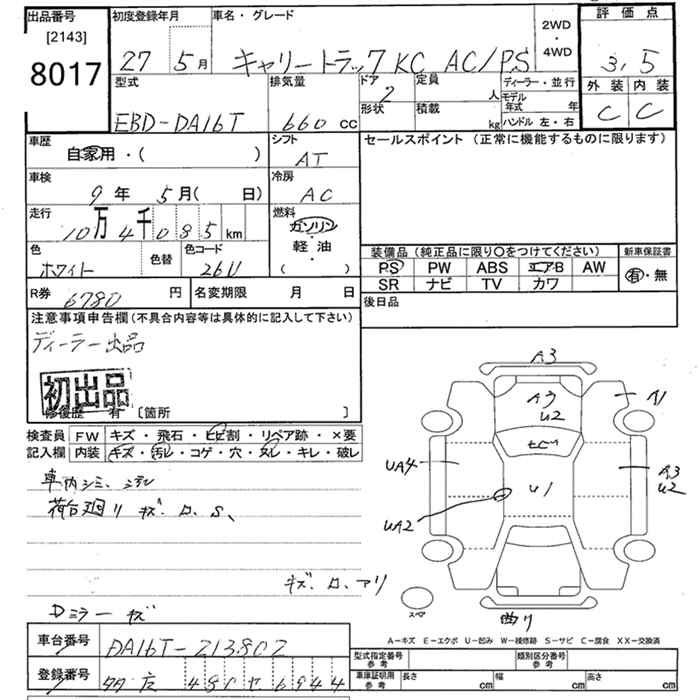 出品番号
[2143]
8017
初度登録年月
27 5月
車名・グレード
キャリートラック KC AC/PS
2WD
・
4WD
評価点
3.5
外装 内装
C C
型式
EBD-DA16T
排気量
660 cc
ドア
2
形状
定員
人
積載
kg
ディーラー・並行
モデル年式 年
ハンドル 左・右
車歴
自家用・( )
シフト
AT
セールスポイント (正常に機能するものに限ります)
車検
9年 5月( 日)
冷房
AC
走行
10万4千085km
燃料
ガソリン
・
軽油
( )
色
ホワイト
色替
色コード
26U
装備品 (純正品に限り〇をつけてください)
新車保証書
PS PW ABS エアB AW
SR ナビ TV カワ
有・無
R券
6780 円
名変期限 月 日
後日品
注意事項申告欄(不具合内容等は具体的に記入して下さい)
ディーラー出品
初出品
修復歴 有 [箇所 ]
検査員
記入欄
FW キズ・飛石・ヒビ割・リペア跡・×要
内装 キズ・汚レ・コゲ・穴・ヌレ・キレ・破レ
車内シミ、
荷台廻りキズ、ロ、S、
キズ、ロ、アリ
Dミラーキズ
A3
A3
U2
A1
UA4
U1
A3
U2
UA2
スペア
曲り
A−キズ E−エクボ U−凹み W−補修跡 S−サビ C−腐食 XX−交換済
車台番号
DA16T-213802
登録番号
480 や 6944
型式指定番号
参考
類別区分番号
参考
車庫証明用
参考
長さ cm
幅 cm
高さ cm